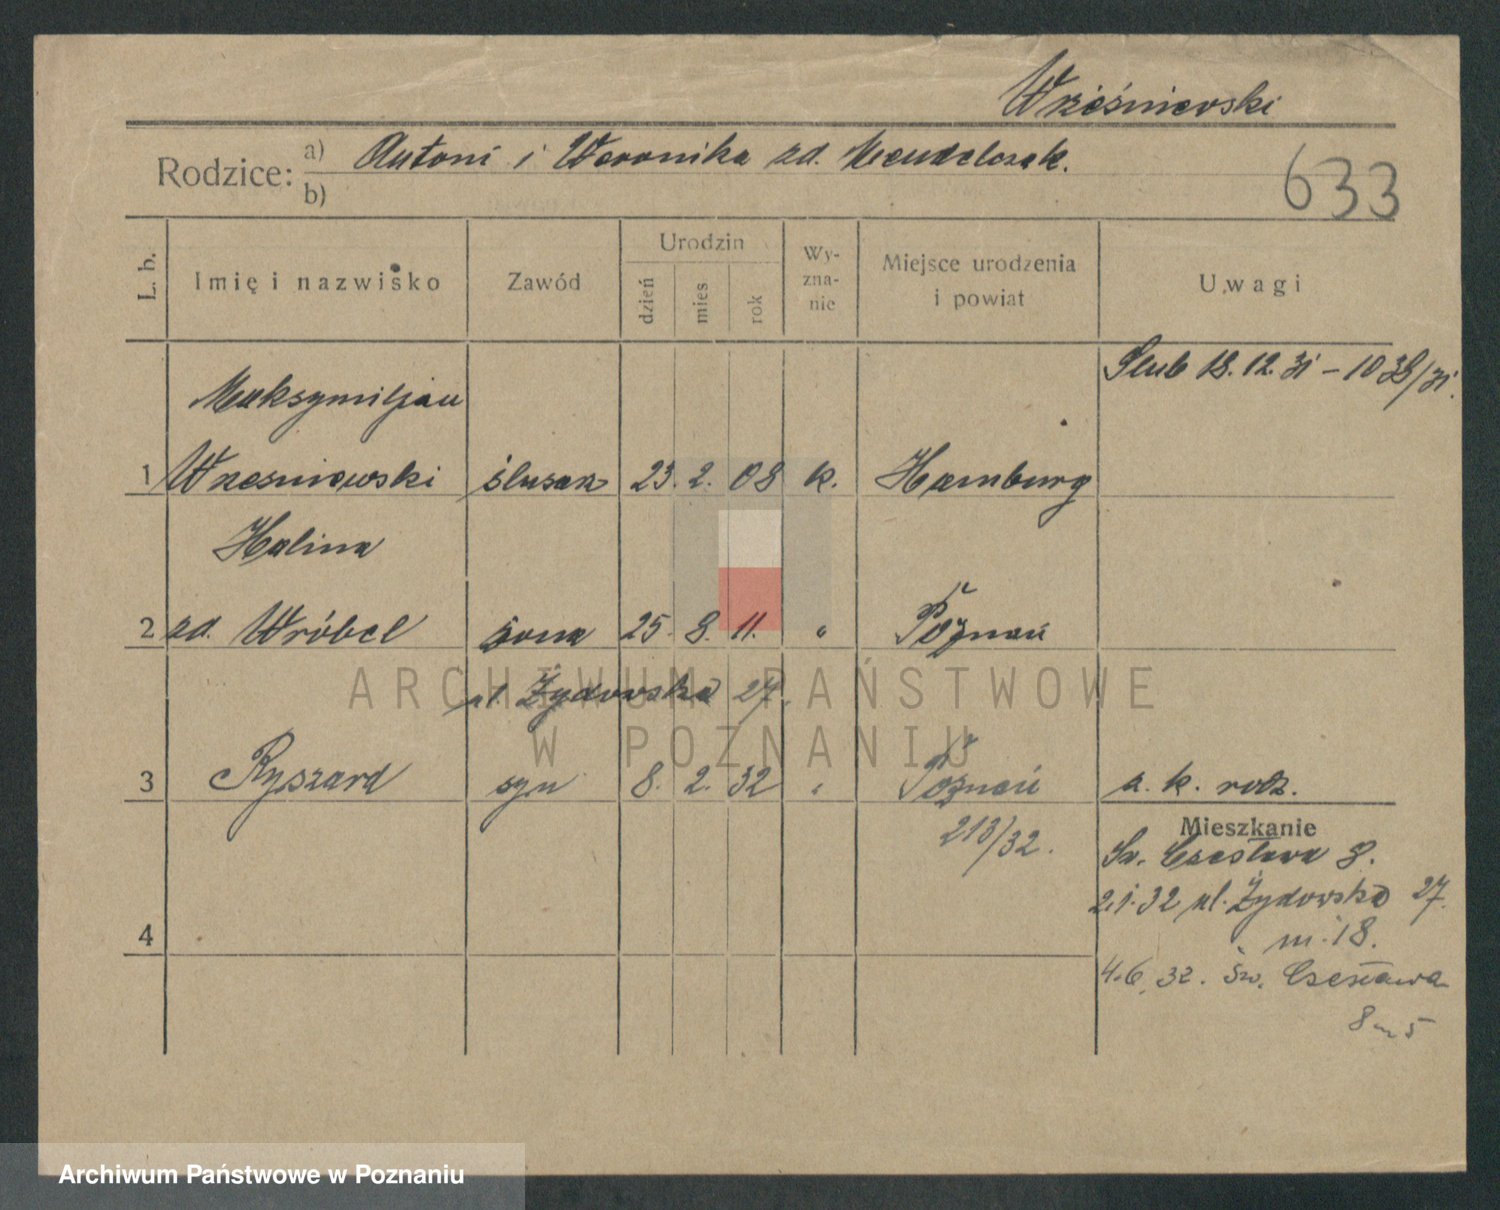 Wrześniewski
Rodzice:
a) Antoni i Weronika zd. Mendelczak.
b)
633
L. b.
Imię i nazwisko
Zawód
Urodzin
dzień
mies
rok
Wy-
zna-
nie
Miejsce urodzenia
i powiat
Uwagi
Ślub 18. 12. 31 – 1038/31.
Maksymiljan
1 Wrześniewski ślusarz 23. 2. 08 k. Hamburg
Halina
2 zd. Wróbel żona 25. 8. 11. " Poznań
ul. Żydowska 27.
3 Ryszard syn 8. 2. 32 " Poznań z. k. rodz.
213/32.
Mieszkanie
Św. Czesława 8.
2.1.32 ul. Żydowska 27.
m. 18.
4
4.6.32. Św. Czesława
8 m 5
ARCHIWUM PAŃSTWOWE
W POZNANIU
Archiwum Państwowe w Poznaniu